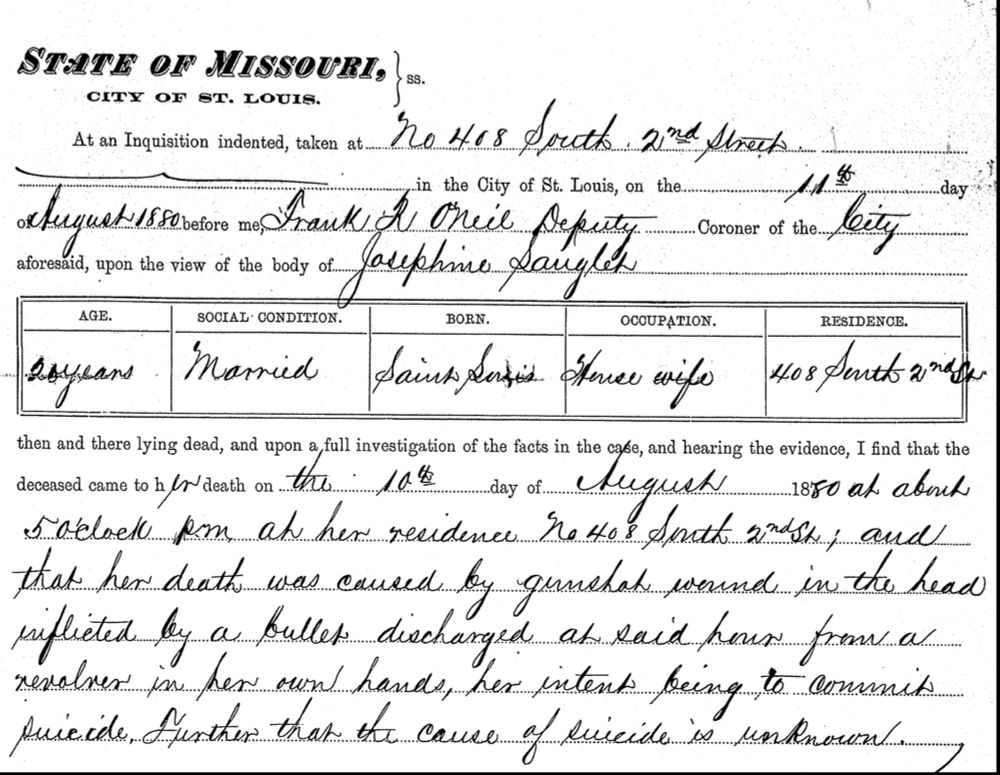 STATE OF MISSOURI, } ss.
CITY OF ST. LOUIS.
At an Inquisition indented, taken at No 408 South 2nd Street
in the City of St. Louis, on the 11th day
of August 1880 before me, Frank R O'Neil Deputy Coroner of the City
aforesaid, upon the view of the body of Josephine
AGE. SOCIAL CONDITION. BORN. OCCUPATION. RESIDENCE.
years Married Saint Louis House wife 408 South 2nd St
then and there lying dead, and upon a full investigation of the facts in the case, and hearing the evidence, I find that the
deceased came to her death on the 10th day of August 1880 at about
5 o'clock pm at her residence No 408 South 2nd St; and
that her death was caused by gunshot wound in the head
inflicted by a bullet discharged at said hour from a
revolver in her own hands, her intent being to commit
suicide. Further that the cause of suicide is unknown.